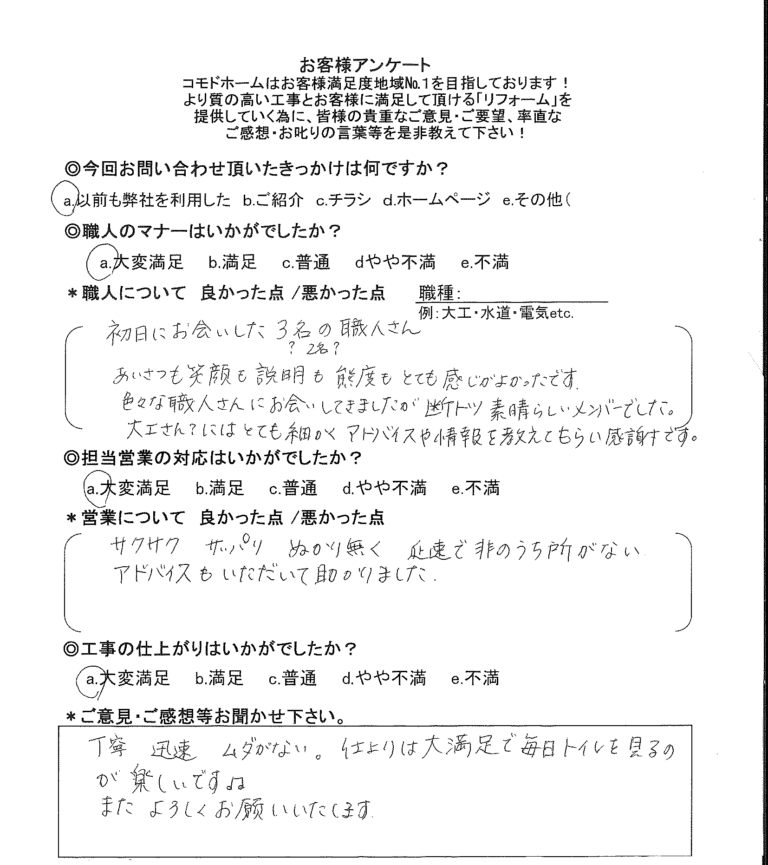 お客様アンケート
コモドホームはお客様満足度地域№1を目指しております！
より質の高い工事とお客様に満足して頂ける「リフォーム」を
提供していく為に、皆様の貴重なご意見・ご要望、率直な
ご感想・お叱りの言葉等を是非教えて下さい！
◎今回お問い合わせ頂いたきっかけは何ですか？
a.以前も弊社を利用した b.ご紹介 c.チラシ d.ホームページ e.その他(
◎職人のマナーはいかがでしたか？
a.大変満足 b.満足 c.普通 dやや不満 e.不満
＊職人について 良かった点 /悪かった点 職種：
例：大工・水道・電気etc.
初日にお会いした3名の職人さん
？2名？
あいさつも笑顔も説明も態度もとても感じがよかったです.
色々な職人さんにお会いしてきましたが断トツ素晴らしいメンバーでした。
大工さん？にはとても細かくアドバイスや情報を教えてもらい感謝です。
◎担当営業の対応はいかがでしたか？
a.大変満足 b.満足 c.普通 d.やや不満 e.不満
＊営業について 良かった点 /悪かった点
サクサク サッパリ ぬかり無く 迅速で非のうち所がない
アドバイスもいただいて助かりました.
◎工事の仕上がりはいかがでしたか？
a.大変満足 b.満足 c.普通 d.やや不満 e.不満
＊ご意見・ご感想等お聞かせ下さい。
丁寧 迅速 ムダがない。仕上りは大満足で毎日トイレを見るの
が楽しいですね
またよろしくお願いいたします.